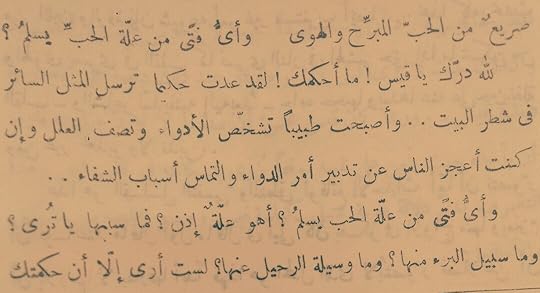 صريعٌ من الحبّ المبرِّح والهوى وأىُّ فتًى من علّة الحبِّ يسلمُ ؟
لله درّك يا قيس ! ما أحكمك ! لقد عدت حكيما ترسل المثل السائر
فى شطر البيت .. وأصبحت طبيباً تشخّص الأدواء وتصف العلل وإن
كنت أعجز الناس عن تدبير أمر الدواء والتماس أسباب الشفاء ..
وأىُّ فتًى من علّة الحب يسلمُ ؟ أهو علّةٌ إذن ؟ فما سببها يا تُرى ؟
وما سبيل البرء منها ؟ وما وسيلة الرحيل عنها ؟ لست أرى إلّا أن حكمتك